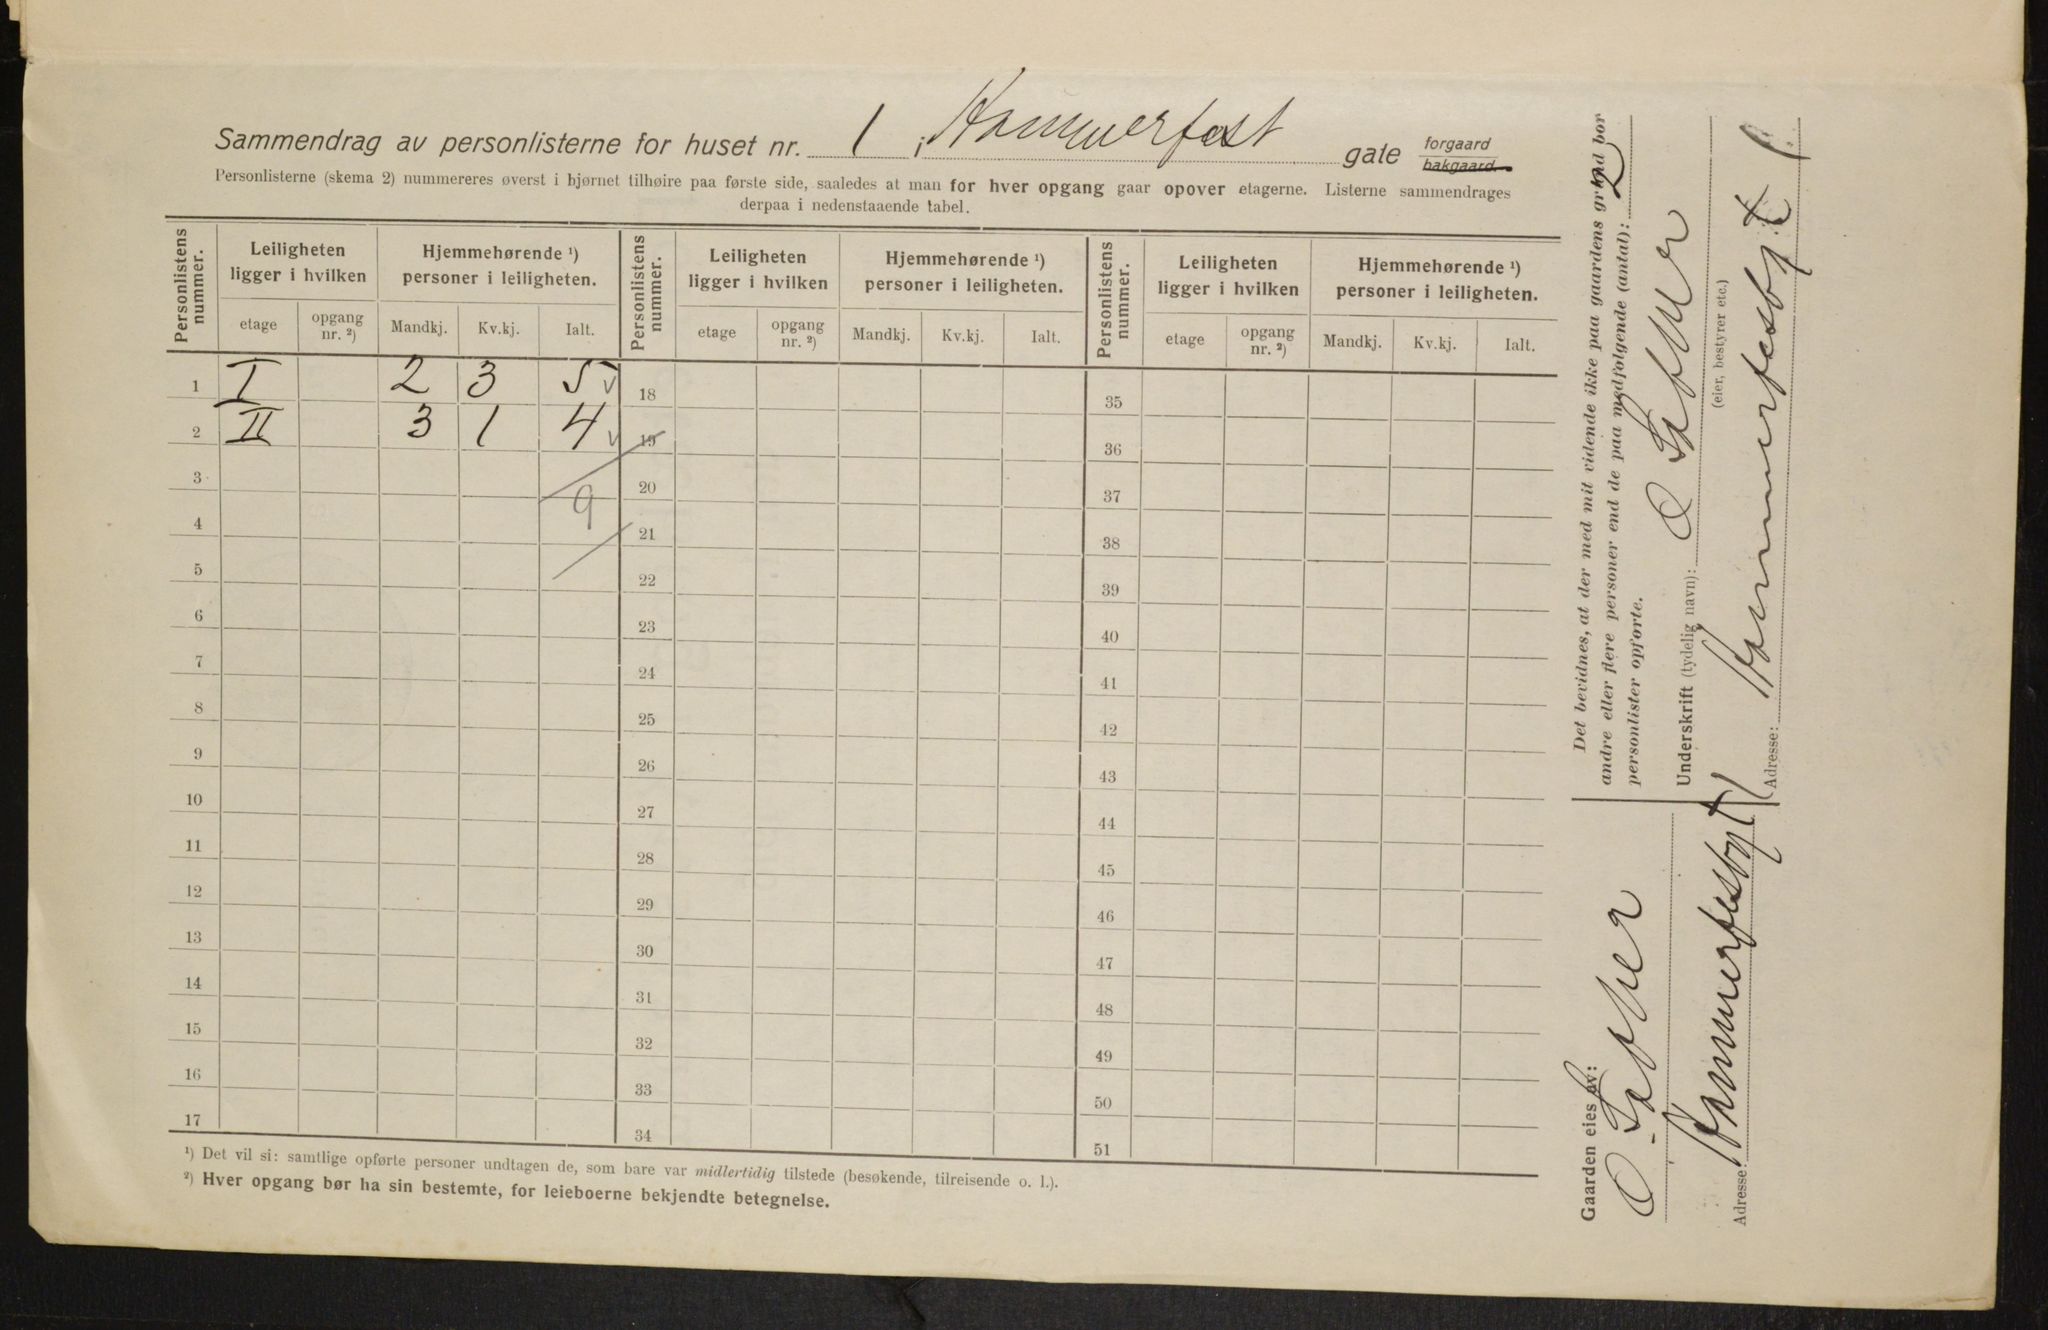 Sammendrag av personlisterne for huset nr. 1 i Hammerfest gate forgaard bakgaard.
Personlisterne (skema 2) nummereres øverst i hjørnet tilhøire paa første side, saaledes at man for hver opgang gaar opover etagerne. Listerne sammendrages
derpaa i nedenstaaende tabel.
Personlistens nummer. Leiligheten ligger i hvilken Hjemmehørende ¹) personer i leiligheten. Personlistens nummer. Leiligheten ligger i hvilken Hjemmehørende ¹) personer i leiligheten. Personlistens nummer. Leiligheten ligger i hvilken Hjemmehørende ¹) personer i leiligheten.
etage opgang nr. ²) Mandkj. Kv.kj. Ialt. etage opgang nr. ²) Mandkj. Kv.kj. Ialt. etage opgang nr. ²) Mandkj. Kv.kj. Ialt.
1 I 2 3 5 v 18 35
2 II 3 1 4 v 19 36
3 9 20 37
4 21 38
5 22 39
6 23 40
7 24 41
8 25 42
9 26 43
10 27 44
11 28 45
12 29 46
13 30 47
14 31 48
15 32 49
16 33 50
17 34 51
¹) Det vil si: samtlige opførte personer undtagen de, som bare var midlertidig tilstede (besøkende, tilreisende o. l.).
²) Hver opgang bør ha sin bestemte, for leieboerne bekjendte betegnelse.
Det bevidnes, at der med mit vidende ikke paa gaardens grund bor
andre eller flere personer end de paa medfølgende (antal): 2
personlister opførte.
Underskrift (tydelig navn): O
(eier, bestyrer etc.)
Adresse: Hammerfesbgt 1
Gaarden eies av:
O.
Adresse: Hammerfesbgt 1